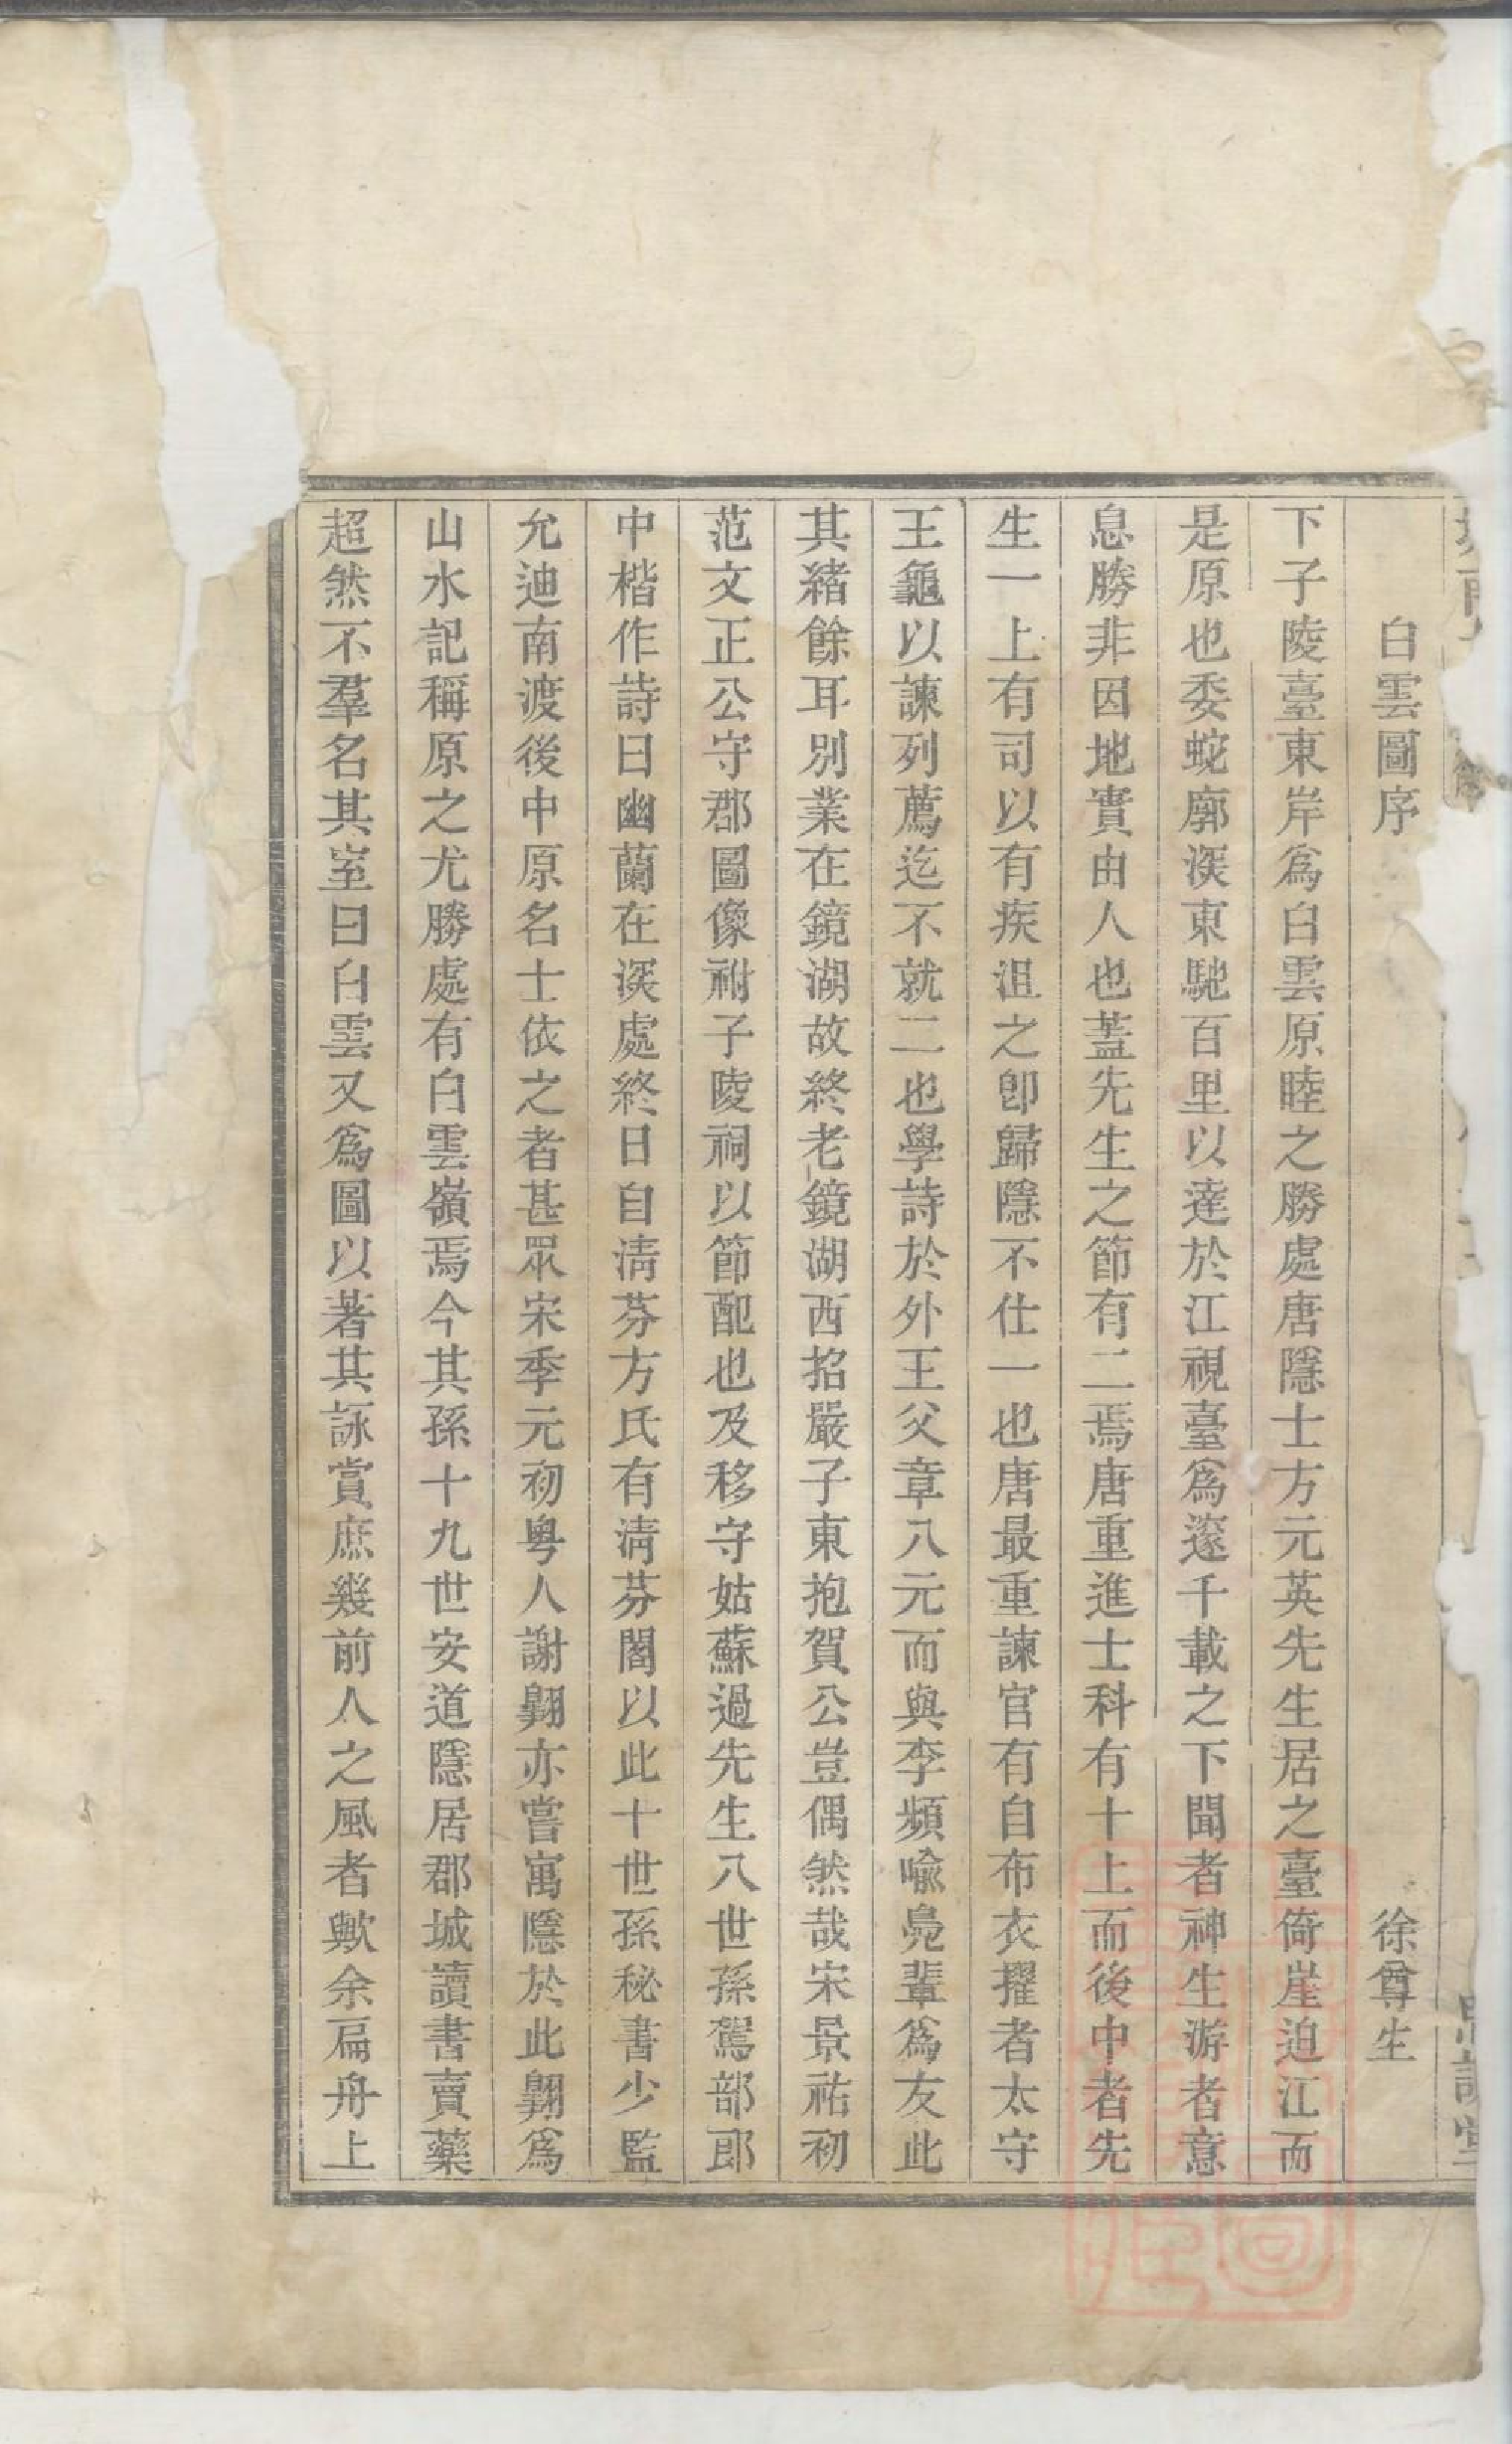 白雲圖序
徐尊生
下子陵臺東岸爲白雲原睦之勝處唐隱士方元英先生居之臺倚崖迫江而
是原也委蛇廓深東馳百里以達於江視臺爲邃千載之下聞者神生游者意
息勝非因地實由人也蓋先生之節有二焉唐重進士科有十上而後中者先
生一上有司以有疾沮之卽歸隱不仕一也唐最重諫官有自布衣擢者太守
王龜以諫列薦迄不就二也學詩於外王父章八元而與李頻喻鳧輩爲友此
其緒餘耳別業在鏡湖故終老鏡湖西招嚴子東抱賀公豈偶然哉宋景祐初
范文正公守郡圖像祔子陵祠以節配也及移守姑蘇過先生八世孫駕部郎
中楷作詩曰幽蘭在深處終日自淸芬方氏有淸芬閣以此十世孫秘書少監
允迪南渡後中原名士依之者甚眾宋季元初粵人謝翺亦嘗寓隱於此翺爲
山水記稱原之尤勝處有白雲嶺焉今其孫十九世安道隱居郡城讀書賣藥
超然不羣名其室曰白雲又爲圖以著其詠賞庶幾前人之風者歟余扁舟上